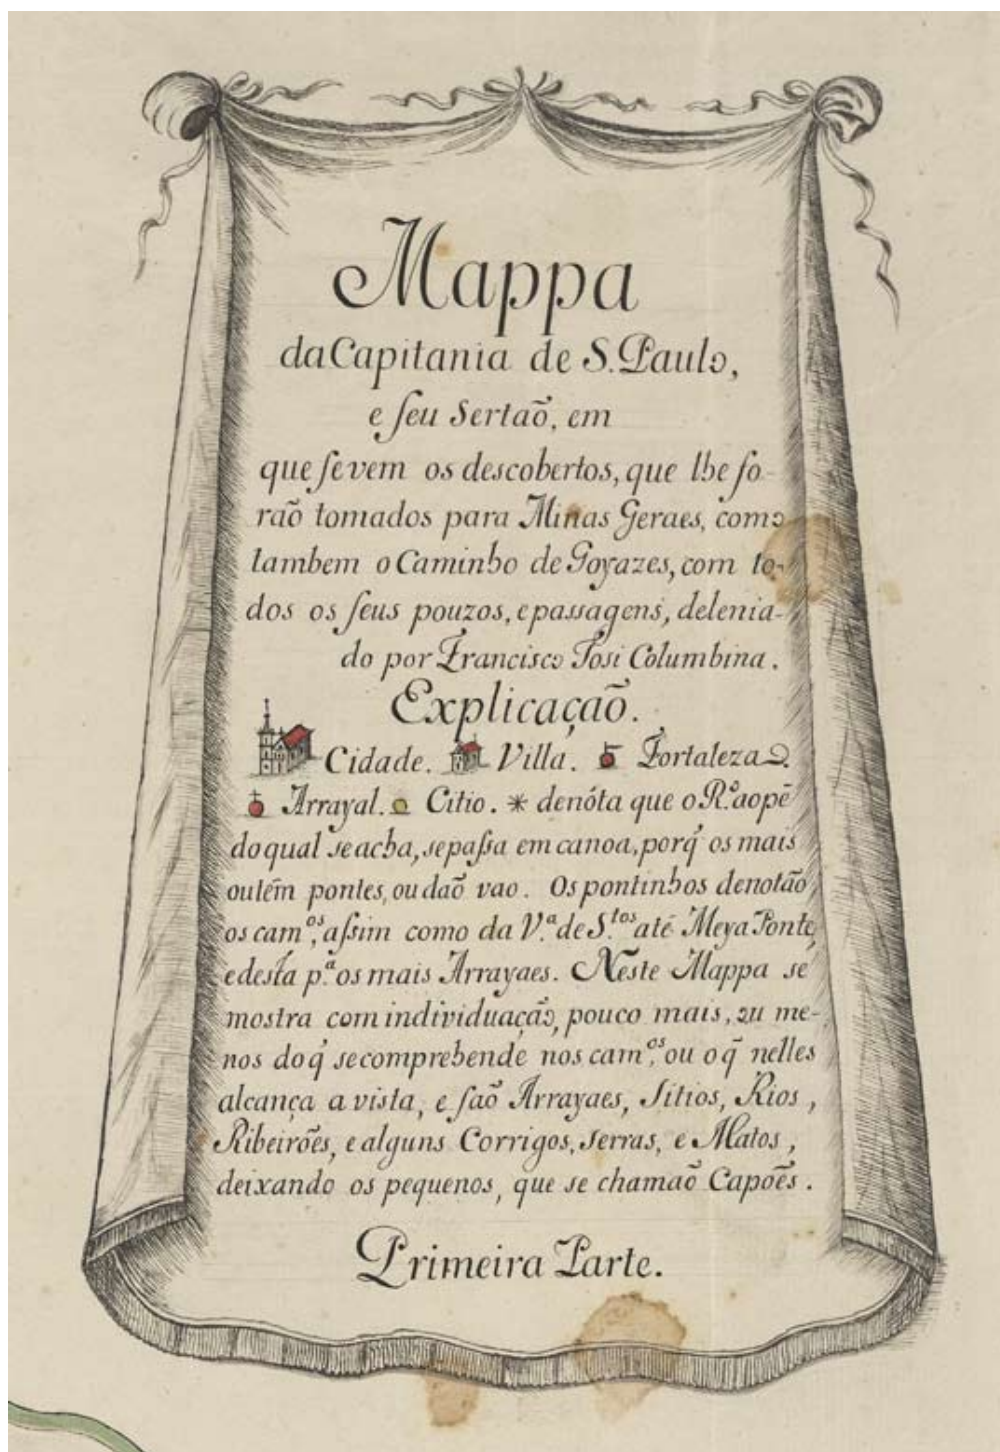 Mappa
da Capitania de S. Paulo,
e ſeu Sertaõ, em
que ſe vem os descobertos, que lhe fo-
raõ tomados para Minas Geraes, como
tambem o Caminho de Goyazes, com to-
dos os ſeus pouzos, e passagens, delenia-
do por Francisco Tosi Columbina.
Explicaçaõ.
Cidade. Villa. Fortaleza.
Arrayal. Citio. * denóta que o R.º ao pé
do qual se acha, se paſsa em canoa, porq̃ os mais
ou tém pontes, ou daõ vao. Os pontinhos denotaõ
os cam.ºˢ, aſsim como da V.ª de S.ᵗᵒˢ até Meya Ponte,
e desta p.ª os mais Arrayaes. Neste Mappa se
mostra com individuaçaõ, pouco mais, ou me-
nos do q̃ se comprehende nos cam.ºˢ, ou o q̃ nelles
alcança a vista, e ſaõ Arrayaes, Sitios, Rios,
Ribeirões, e alguns Corrigos, Serras, e Matos,
deixando os pequenos, que se chamaõ Capoẽs.
Primeira Parte.